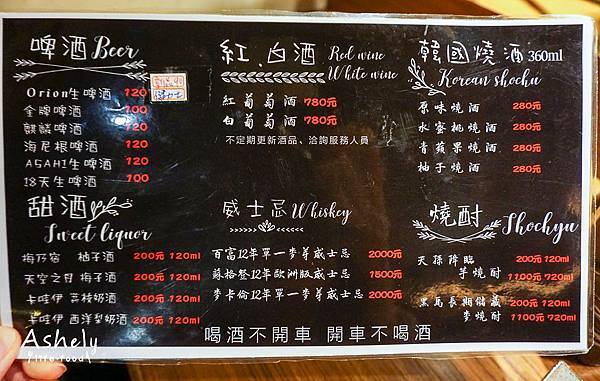 啤酒 Beer
Orion生啤酒 120
金牌啤酒 100
麒麟啤酒 120
海尼根啤酒 120
ASAHI生啤酒 120
18天生啤酒 100
甜酒 Sweet liquor
梅乃宿 柚子酒 200元 120ml
天空之月 梅子酒 200元 120ml
卡哇伊 荔枝奶酒 200元 120ml
卡哇伊 西洋梨奶酒 200元 120ml
紅.白酒 Red wine
White wine
紅葡萄酒 780元
白葡萄酒 780元
不定期更新酒品、洽詢服務人員
威士忌 Whiskey
百富12年單一麥芽威士忌 2000元
蘇格登12年歐洲版威士忌 1500元
麥卡倫12年單一麥芽威士忌 2000元
韓國燒酒 360ml
Korean shochu
原味燒酒 280元
水蜜桃燒酒 280元
青蘋果燒酒 280元
柚子燒酒 280元
燒酎 Shochyu
天孫降臨 200元 120ml
芋燒酎 1100元 720ml
黑馬長期儲藏 200元 120ml
麥燒酎 1100元 720ml
喝酒不開車 開車不喝酒
Ashely